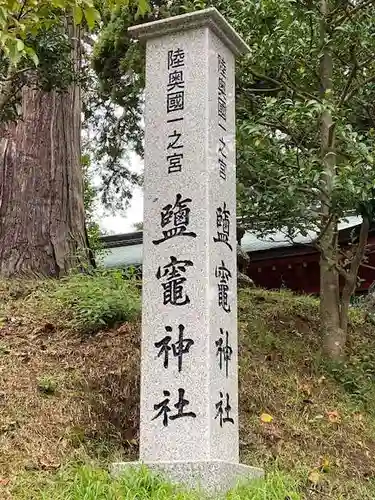 陸奥國一之宮
鹽竈神社
陸奥國一之宮
鹽竈神社